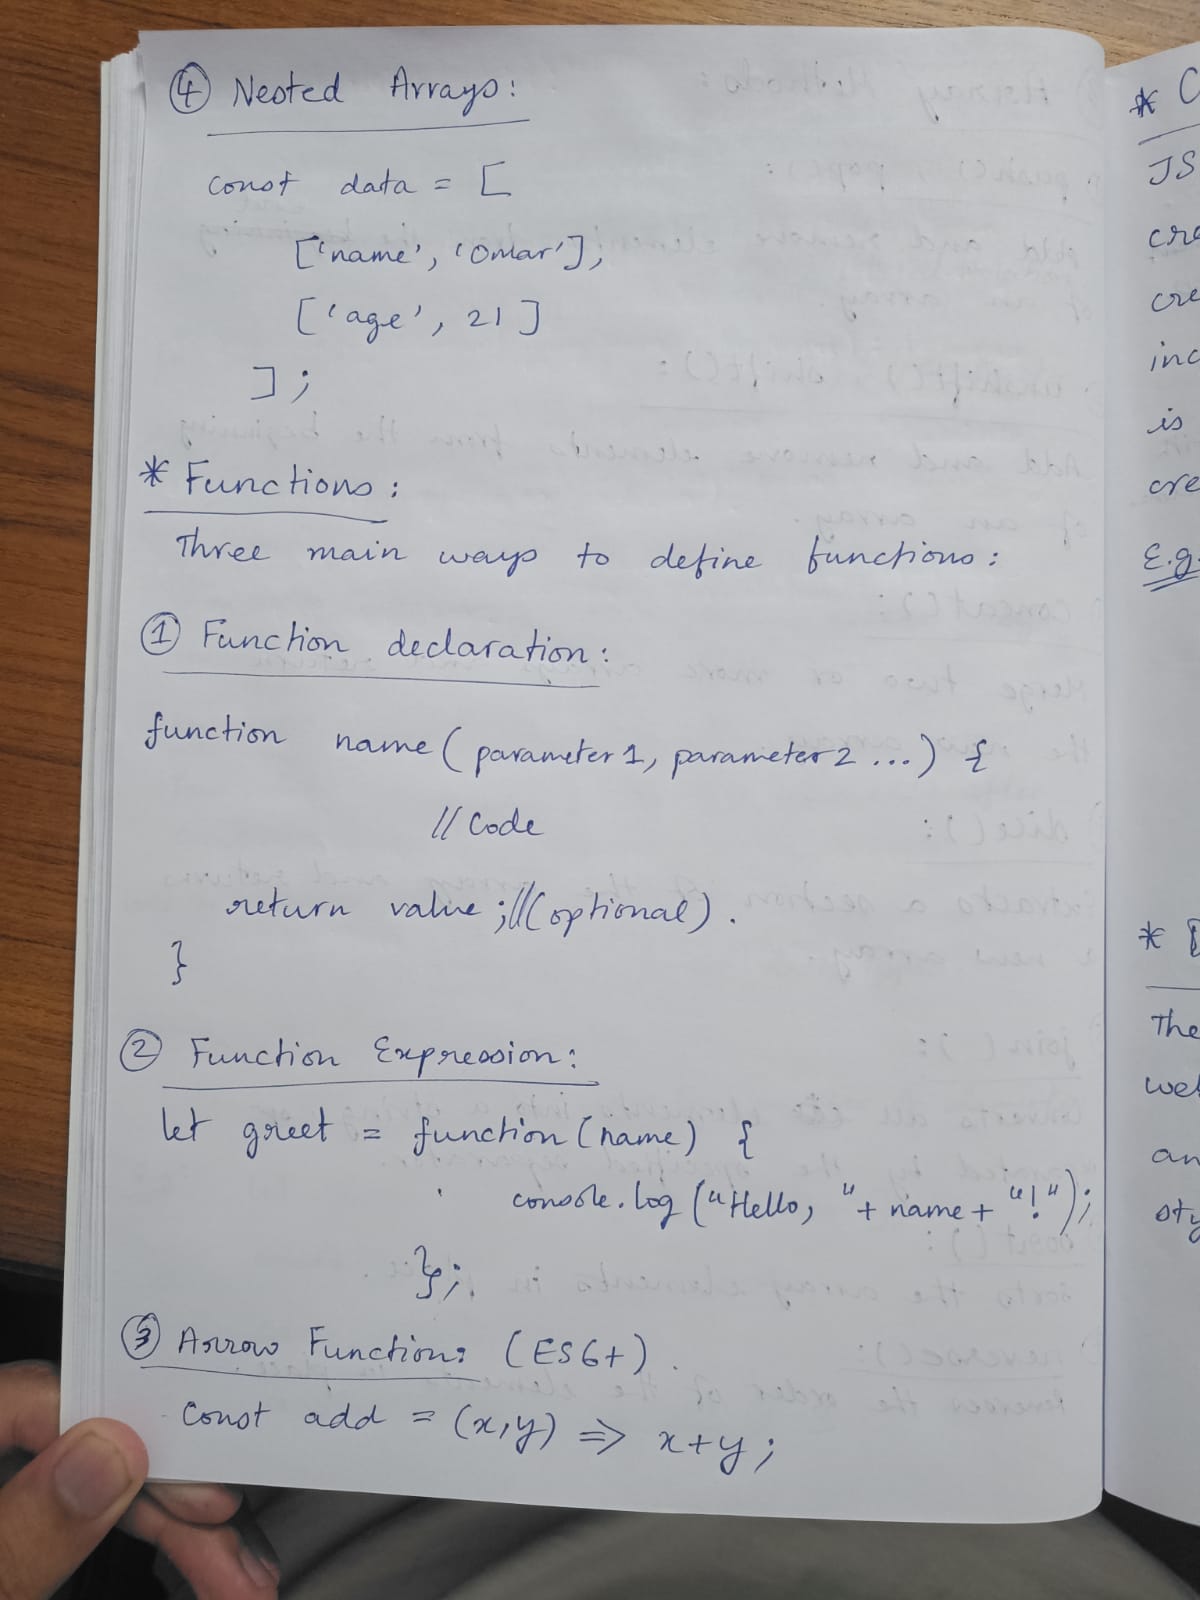 ④ Nested Arrays:
const data = [
['name', 'Omar'],
['age', 21]
];
* Functions:
Three main ways to define functions:
① Function declaration:
function name (parameter1, parameter2 ...) {
// Code
return value ;//(optional).
}
② Function Expression:
let greet = function (name) {
console.log ("Hello, "+ name + "!");
};
③ Arrow Function: (ES6+).
const add = (x,y) => x+y;
* C
JS
cre
cre
inc
is
cre
E.g.
*
The
web
an
sty